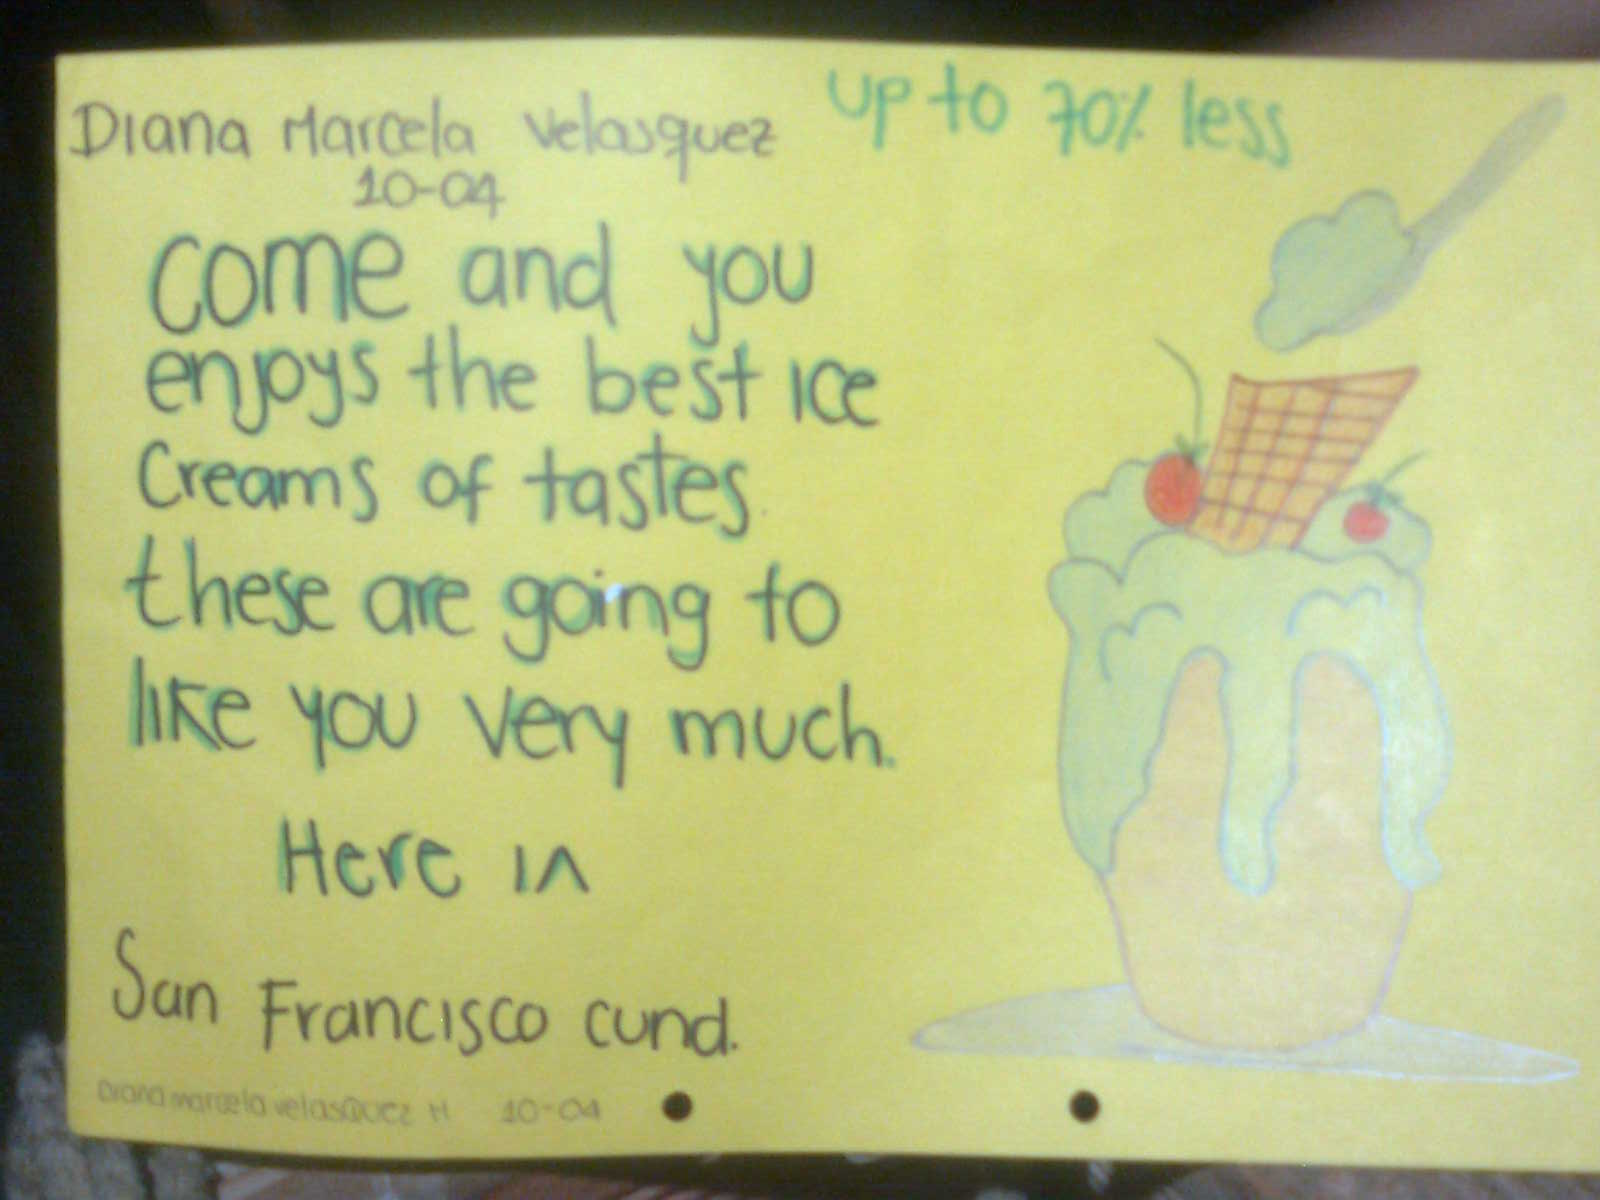 Diana Marcela Velasquez
10-04
up to 70% less
come and you
enjoys the best ice
Creams of tastes.
these are going to
like you very much.
Here in
San Francisco cund.
Diana marcela velasquez H 10-04